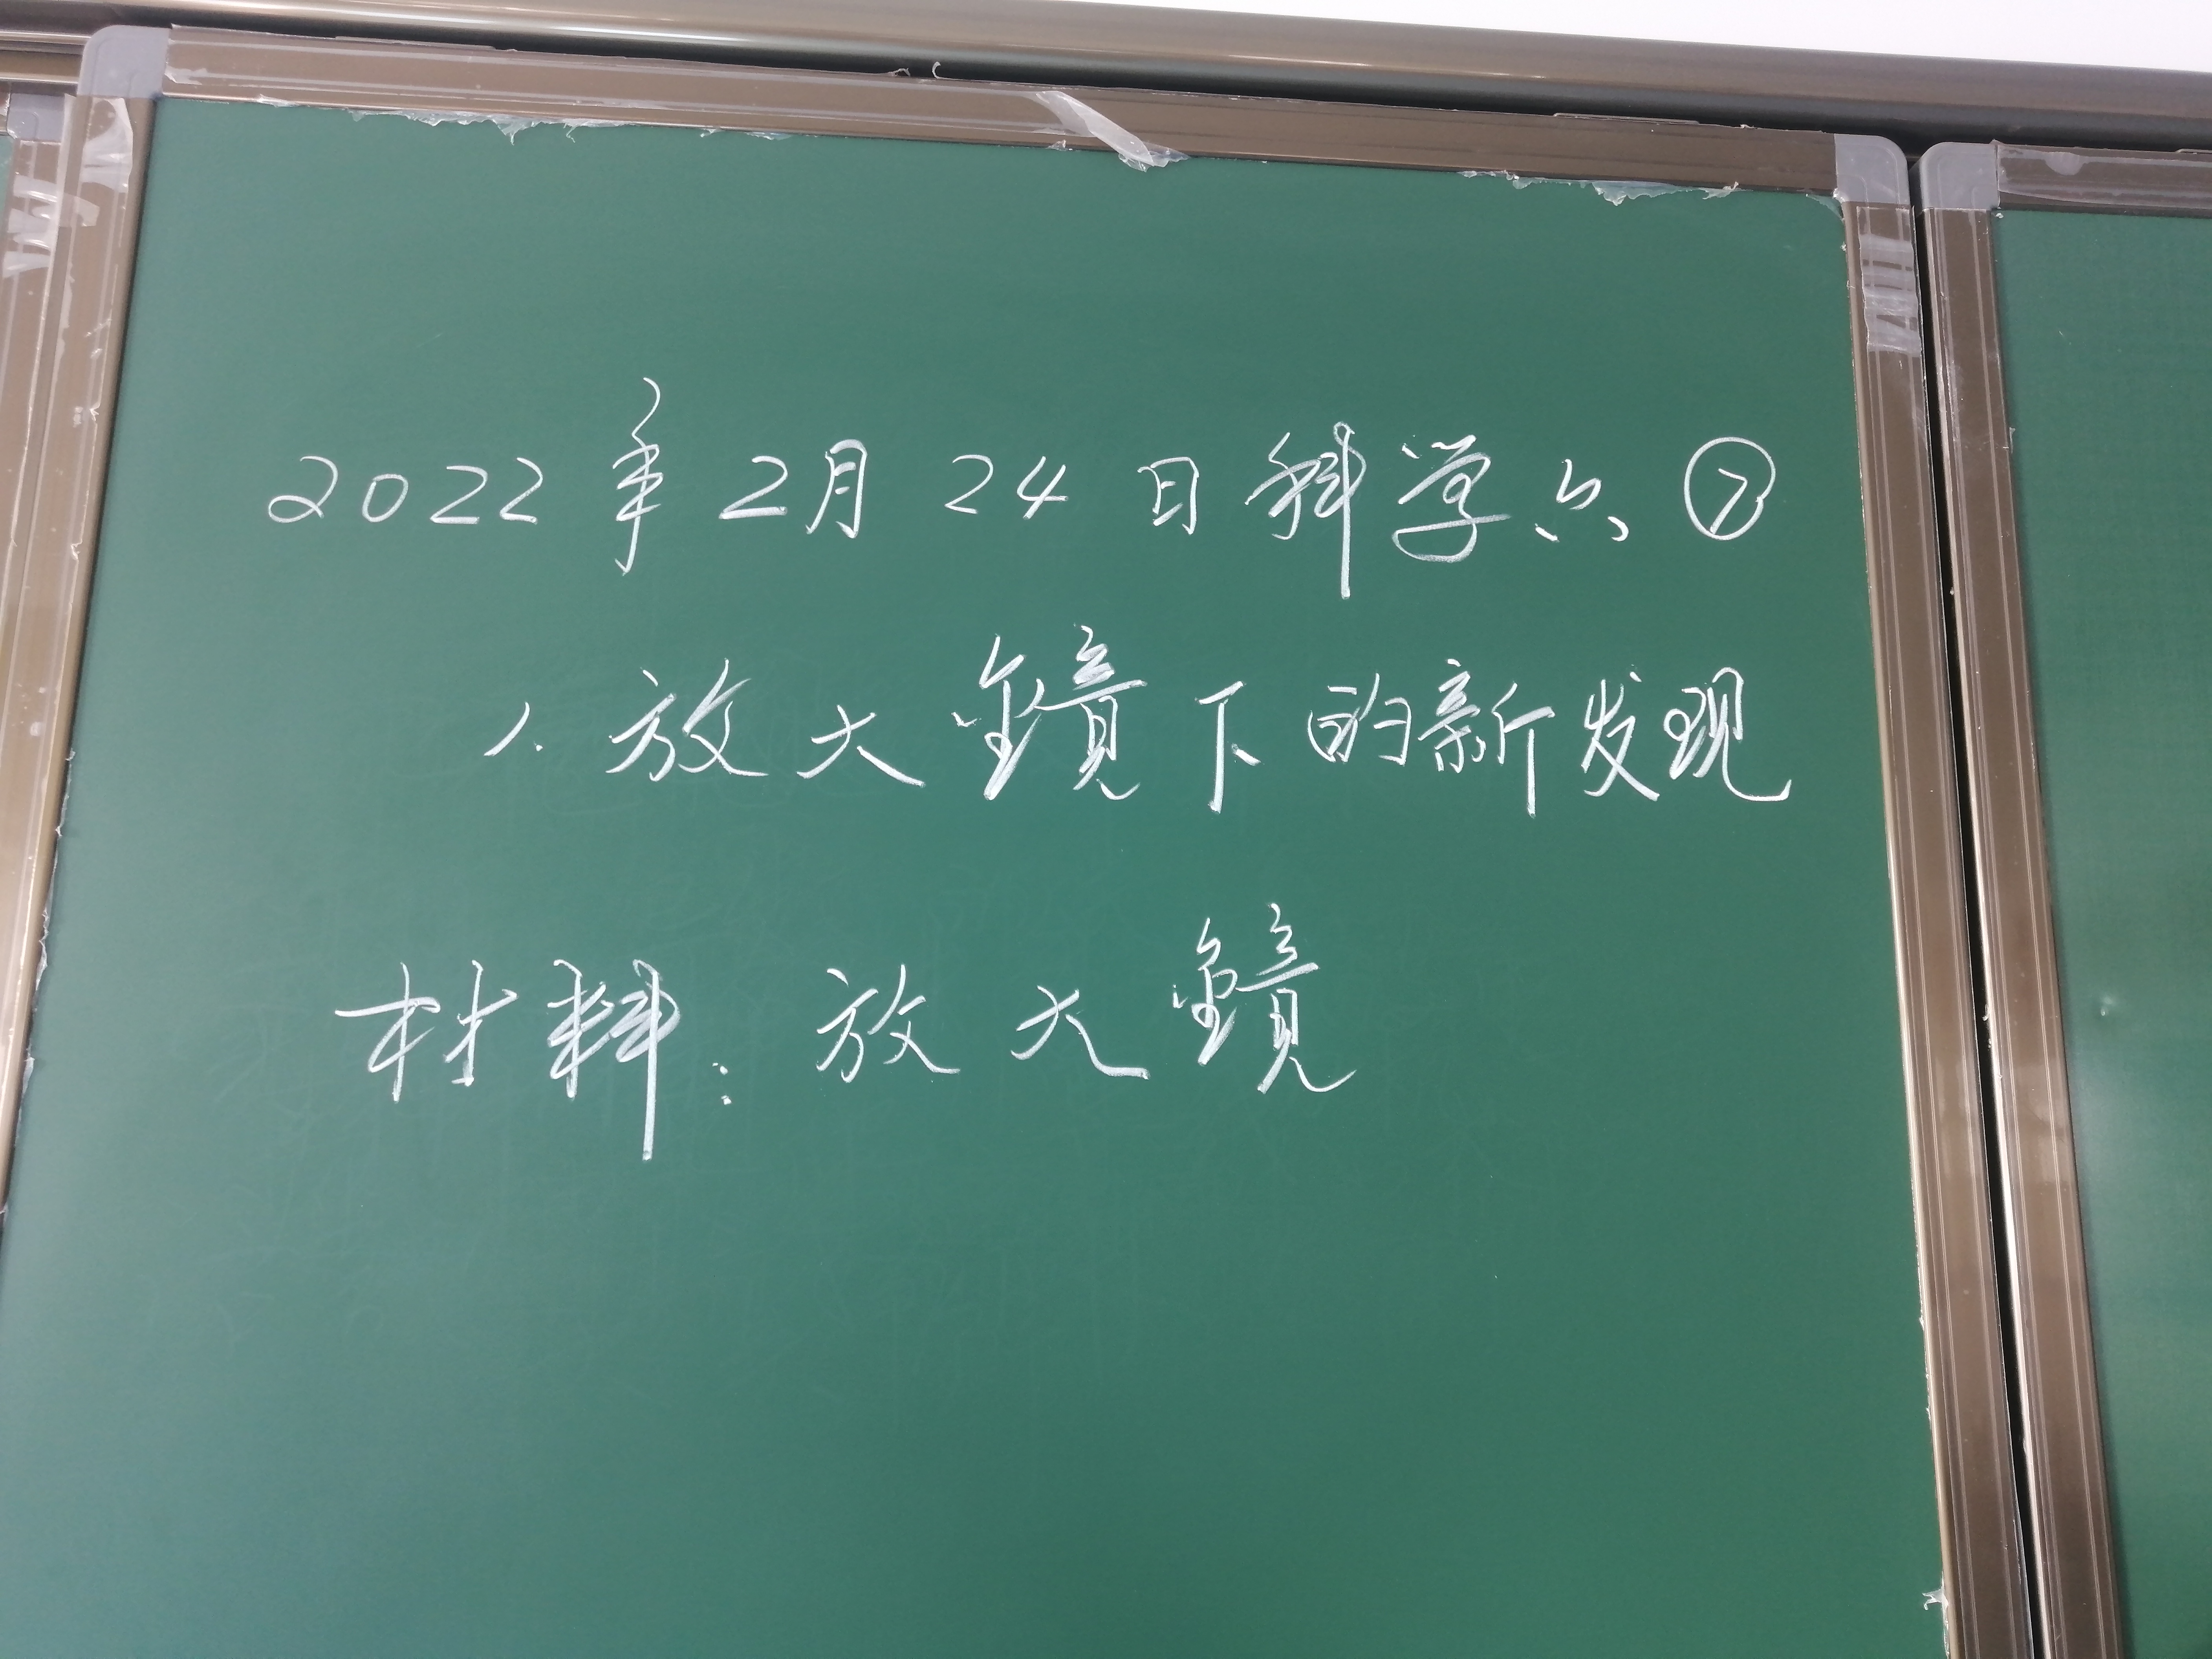 2022年2月24日科学六⑦
1.放大鏡下的新发现
材料:放大鏡